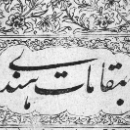 بمقامات هندی